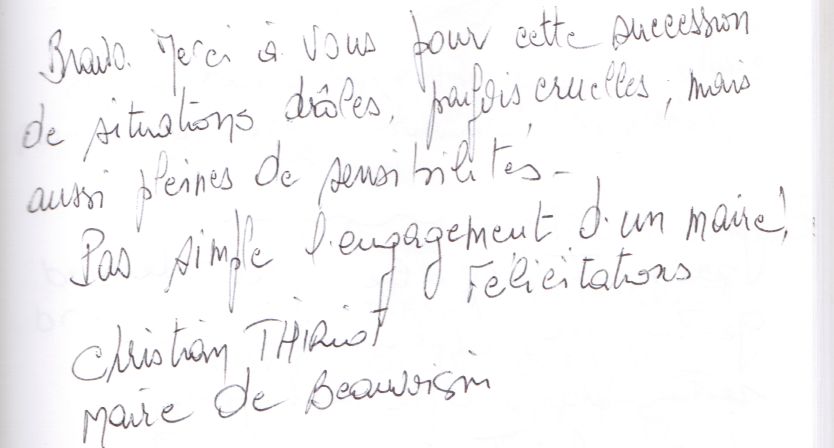 Bravo. Merci à vous pour cette succession
de situations drôles, parfois cruelles, mais
aussi pleines de sensibilités -
Pas simple l'engagement d'un maire!
Félicitations
Christian THIRIOT
Maire de Beauvoisin